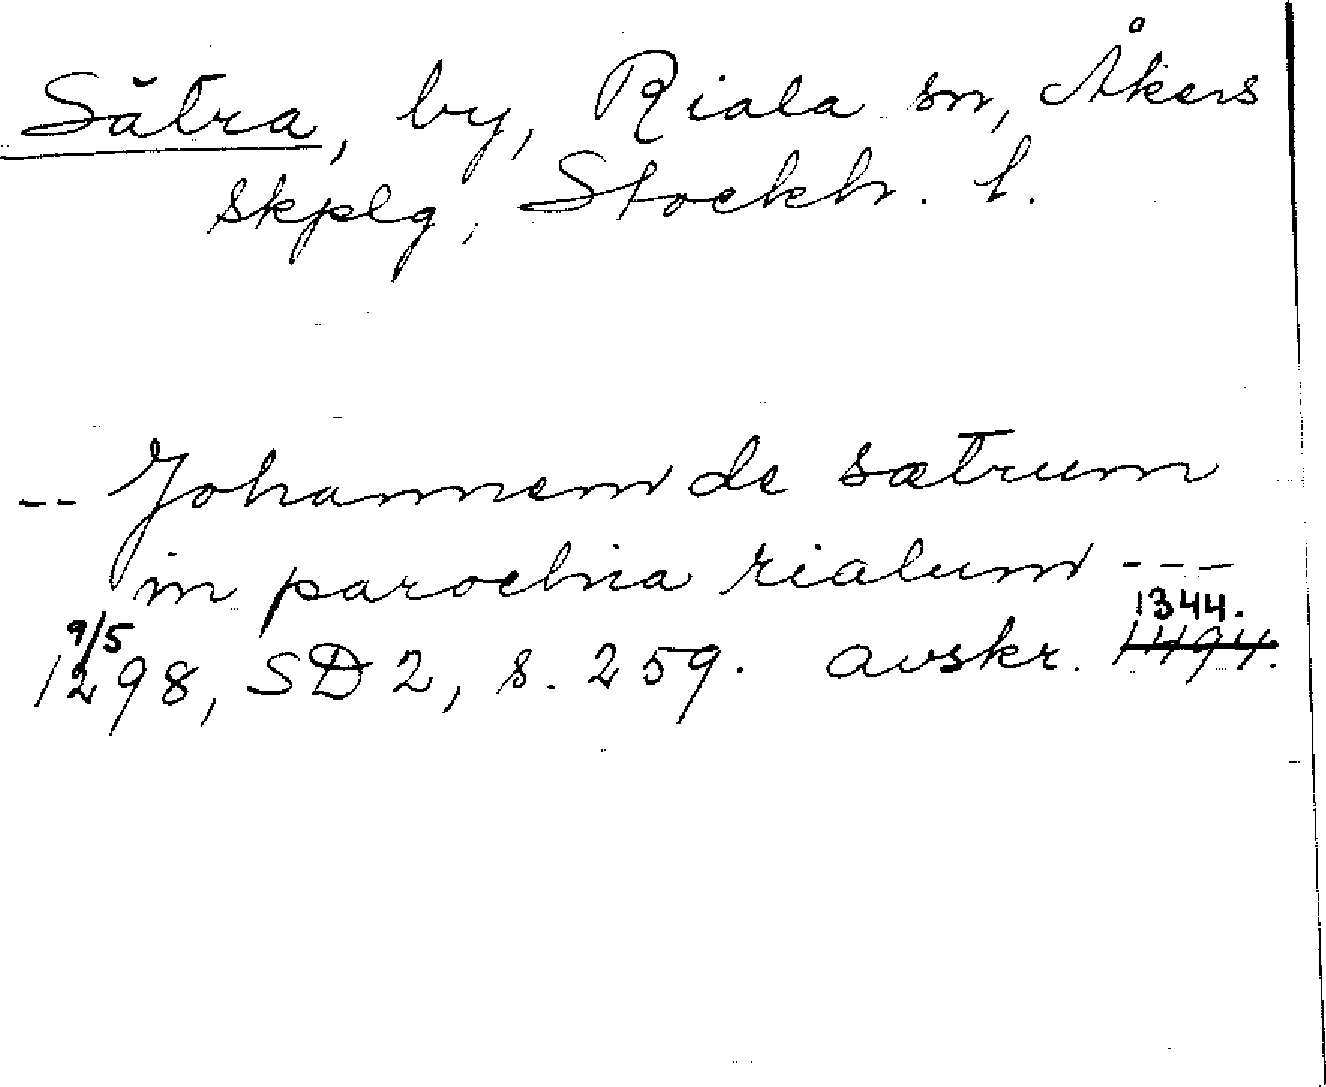 Sätra, by, Riala sn, Åkers
skplg, Stockh. l.
-- Johannem de sætrum
in parochia rialum ---
9/5 1344.
1298, SD 2, s. 259. avskr. 1494.